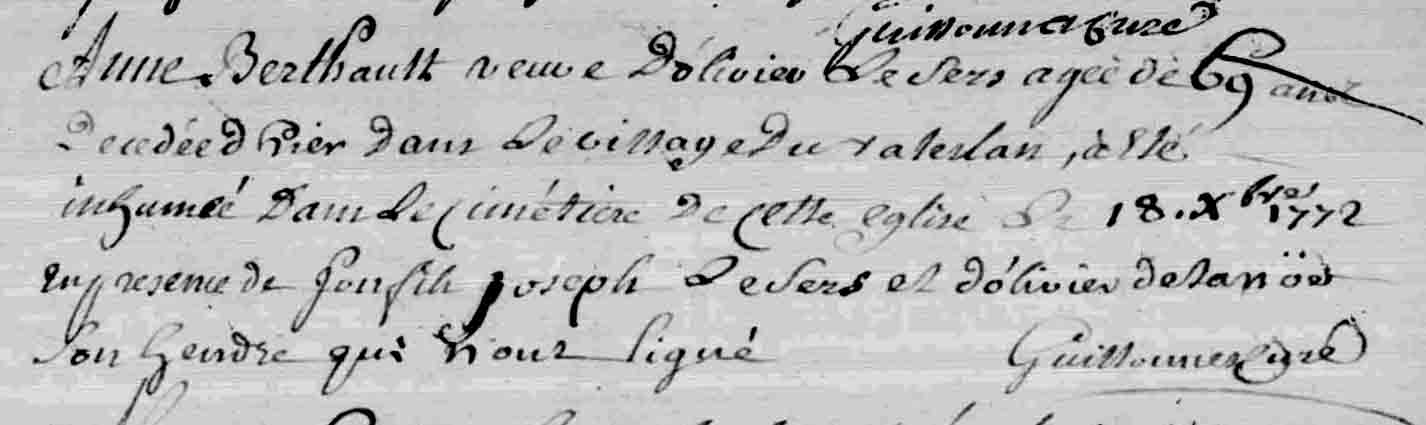 Guillonnet Curé
Anne Berthault veuve d'olivier Le Sers agée de 69 ans
Decedée d hier dans Le village du , a été
inhumée dans Le cimétière de cette eglise Le 18. Xbre 1772
en presence de son fils joseph Le Sers et d'olivier delanöe
son gendre qui n'ont signé
Curé